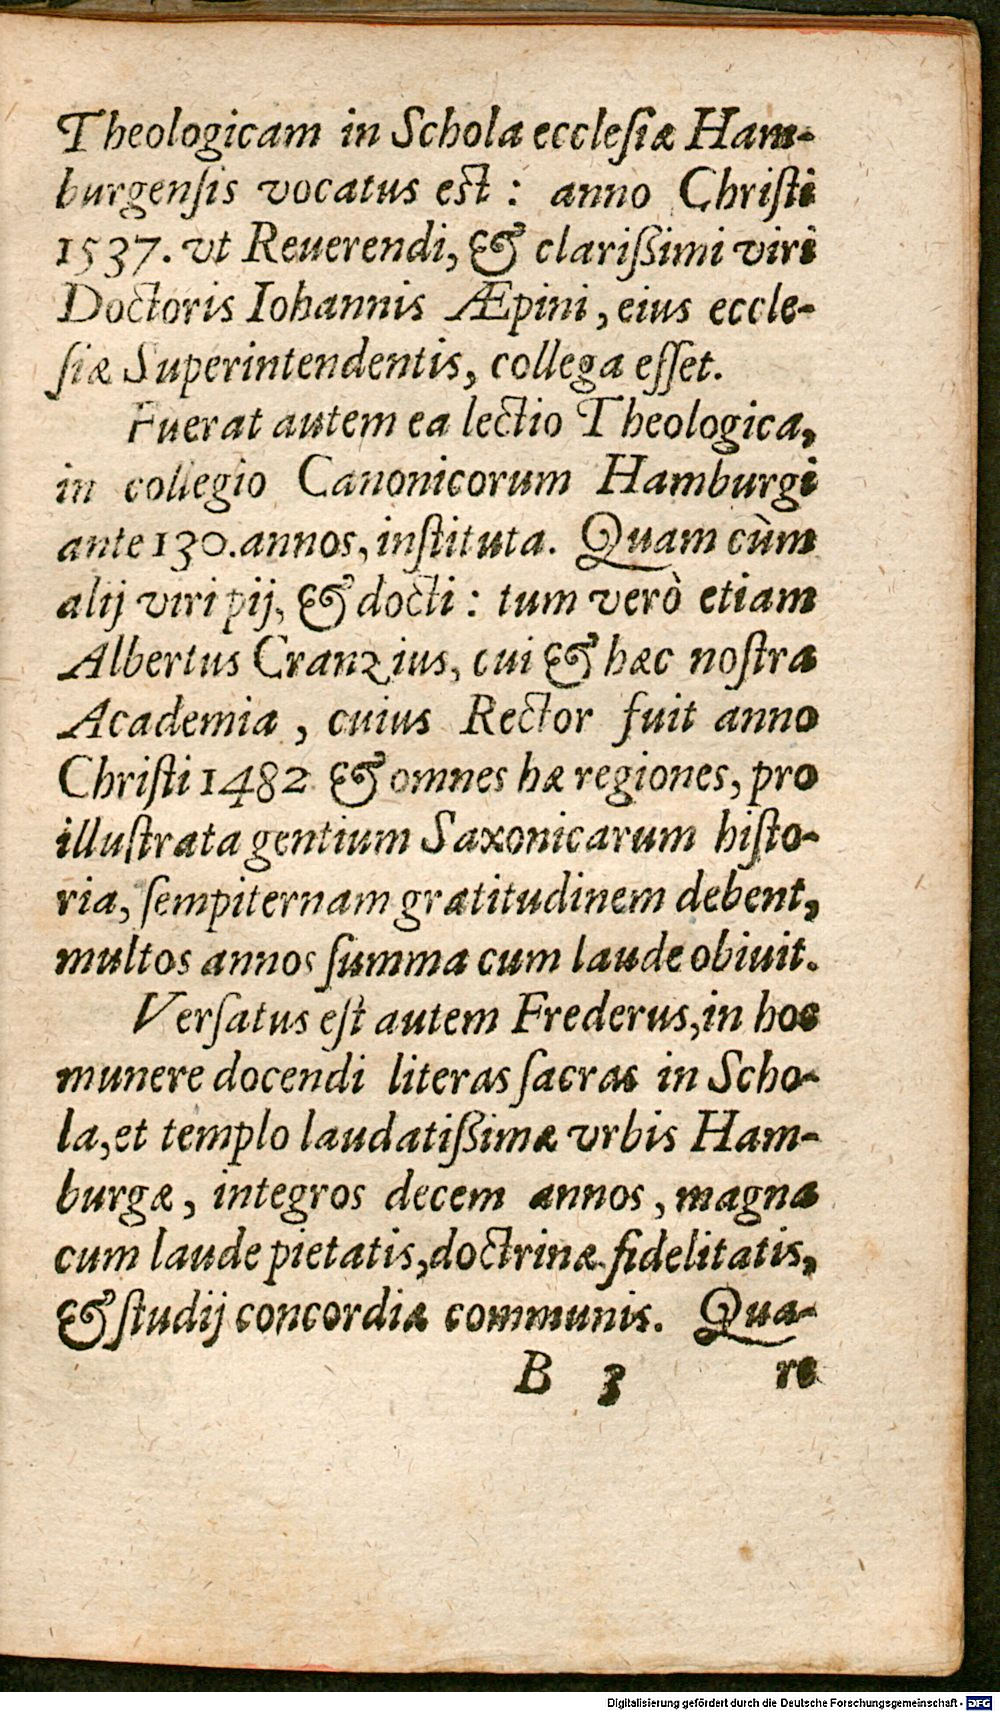 Theologicam in Schola ecclesiæ Ham-
burgensis vocatus est : anno Christi
1537. vt Reuerendi, & clarißimi viri
Doctoris Iohannis Æpini, eius eccle-
siæ Superintendentis, collega esset.
Fuerat autem ea lectio Theologica,
in collegio Canonicorum Hamburgi
ante 130. annos, instituta. Quam cùm
alij viri pij, & docti : tum verò etiam
Albertus Cranzius, cui & hæc nostra
Academia, cuius Rector fuit anno
Christi 1482 & omnes hæ regiones, pro
illustrata gentium Saxonicarum histo-
ria, sempiternam gratitudinem debent,
multos annos summa cum laude obiuit.
Versatus est autem Frederus, in hoc
munere docendi literas sacras in Scho-
la, et templo laudatißimæ vrbis Ham-
burgæ, integros decem annos, magna
cum laude pietatis, doctrinæ. fidelitatis,
& studij concordiæ communis. Qua-
B 3 re
Digitalisierung gefördert durch die Deutsche Forschungsgemeinschaft - DFG